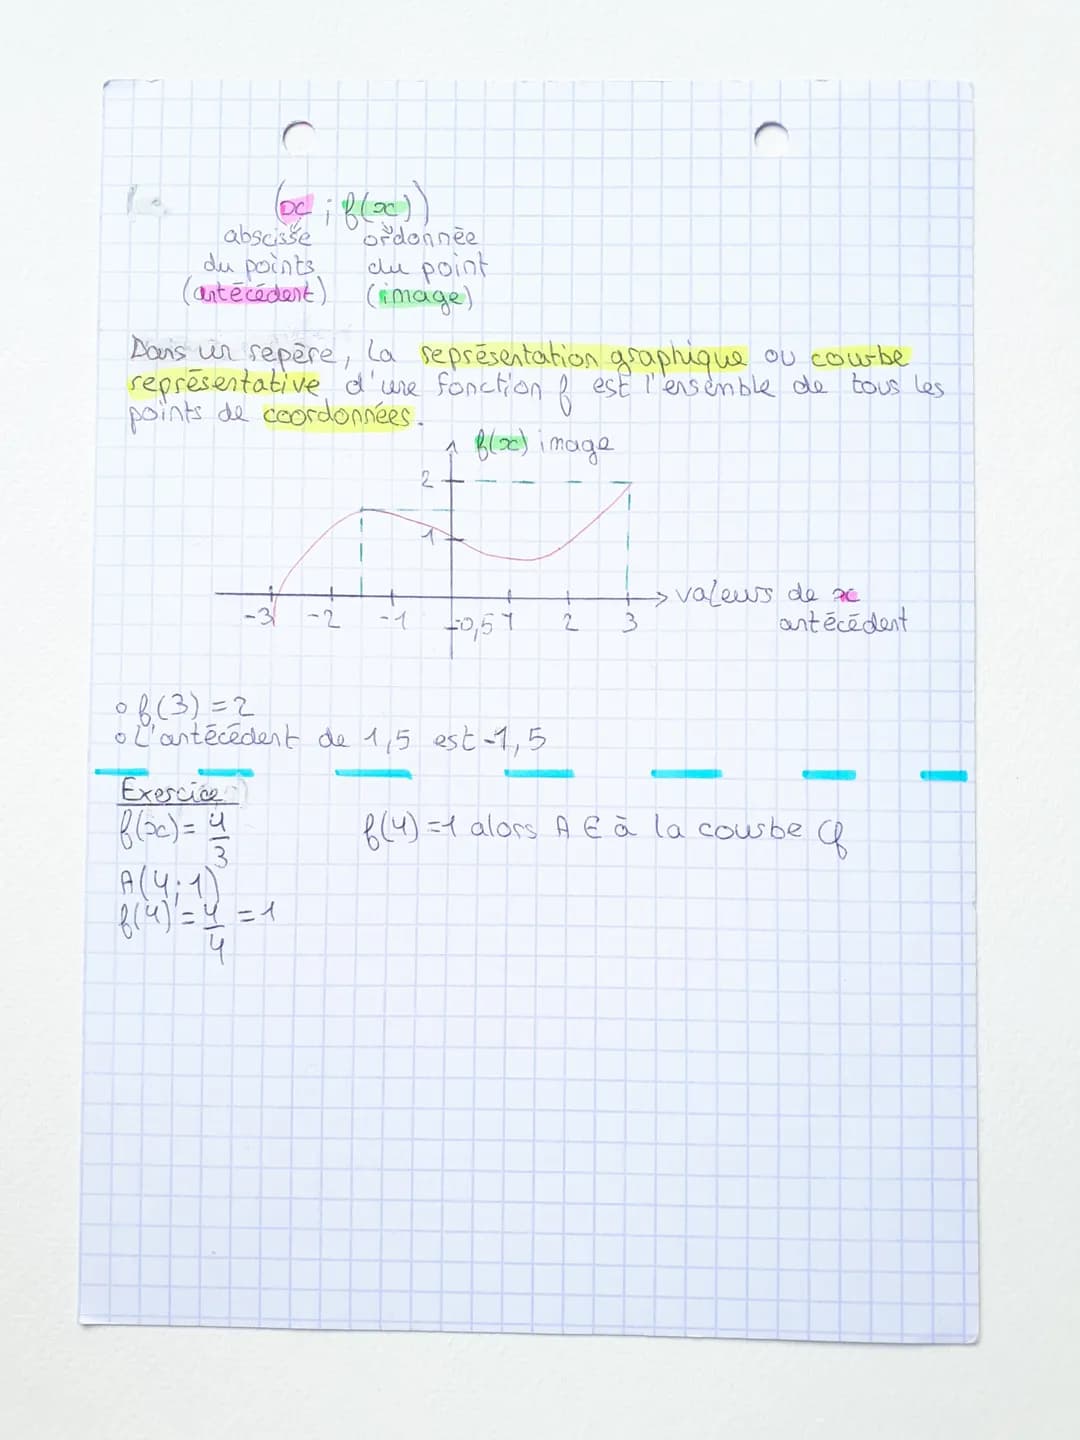 (x ; f(x))
abscisse ordonnée
du points du point
(antécédent) (image)
Dans un repère, la représentation graphique ou courbe
représentative d'une fonction f est l'ensemble de tous les
points de coordonnées.
f(x) image
2
1
valeurs de x
-3 -2 -1 -0,5 1 2 3 antécédent
o f(3) = 2
o L'antécédent de 1,5 est -1,5
Exercice
f(x) = 4/3 f(4) = 1 alors A ∈ à la courbe Cf
A(4;1)
f(4) = 4/4 = 1